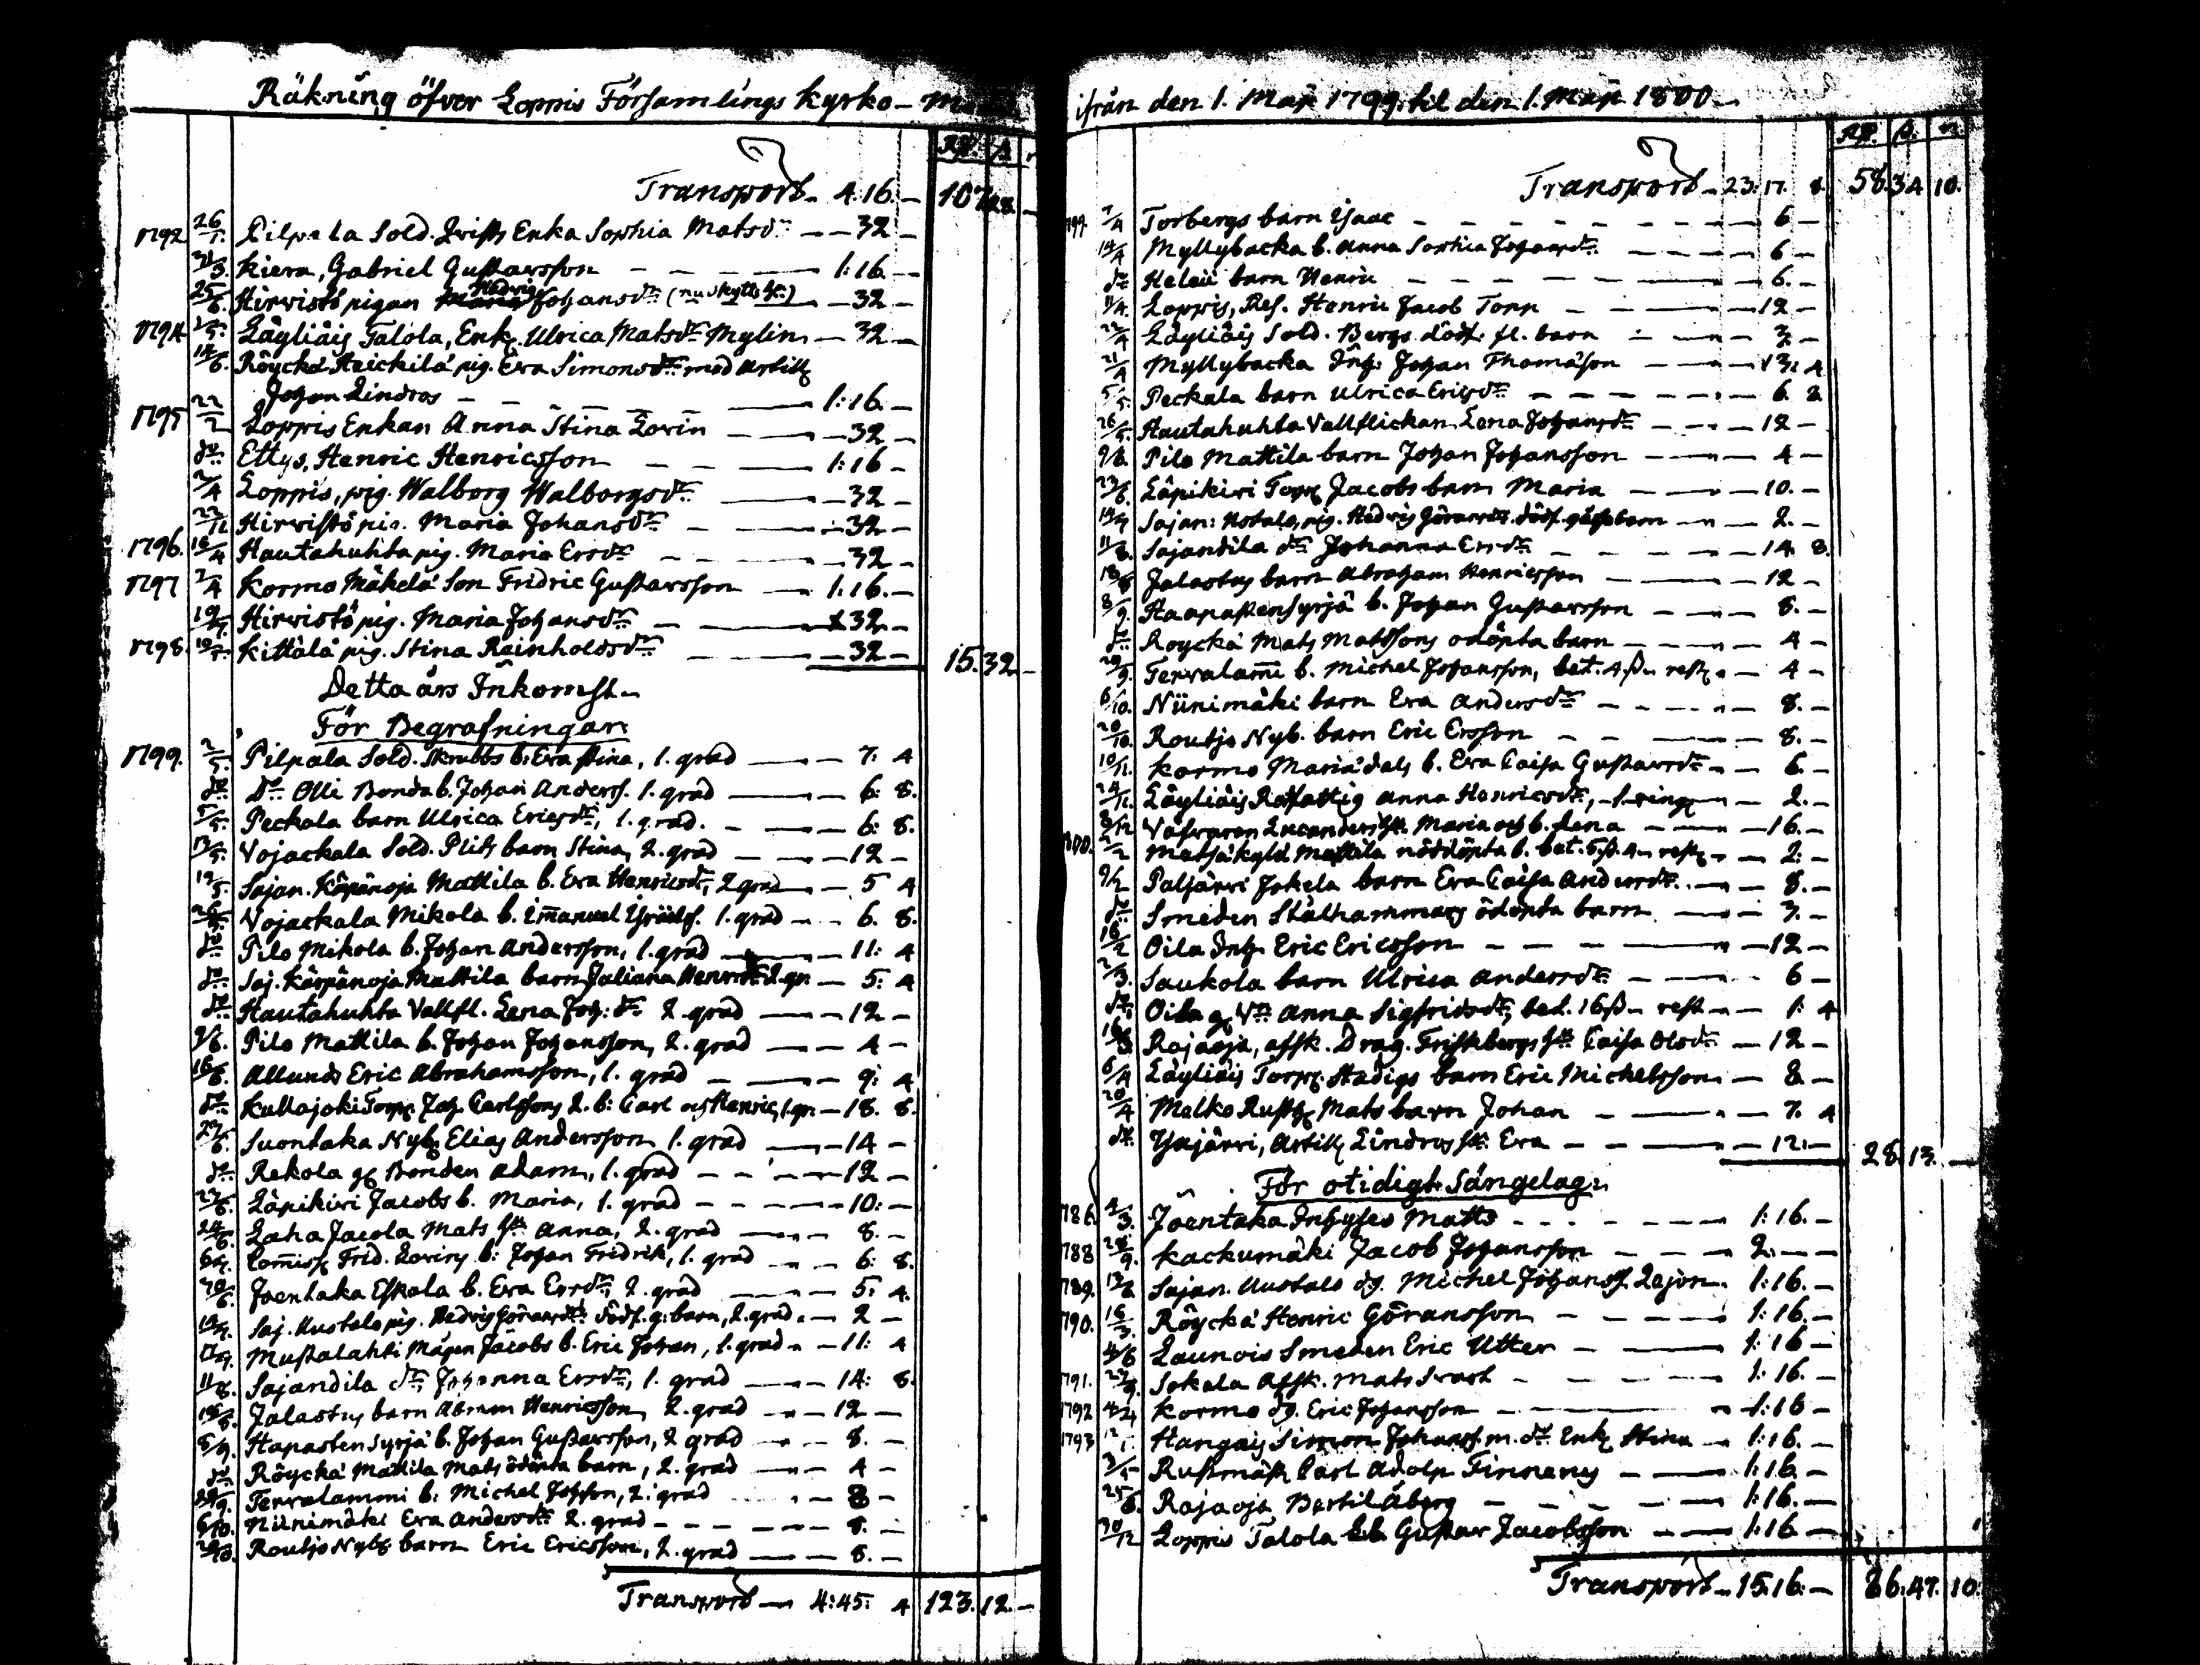 Räkning öfver Loppis Församlings Kyrko-
Rdr. ß.
Transport - 4.16. - 107.28. -
1792 26/1. Pilpala Sold. Enka Sophia Matsdr. - 32 -
31/3. Kiera, Gabriel Gustavsson - 1:16. -
25/6. Hirvistö pigan Hedvig Johansdr. (nu skytts h.) - 32 -
1794. Läyliäis Talola, Enk. Ulrica Matsdr. Mylin - 32 -
14/6. Röyckä Heickilä pig. Eva Simonsdr. med Artill.
Johan Lindros - 1:16. -
1795 22/2 Loppis Enkan Anna Stina Lovin - 32 -
do. Ettys, Henric Henricsson - 1:16 -
2/4 Loppis, pig. Walborg Walborgsdr. - 32 -
22/11 Hirvistö pig. Maria Johansdr. - 32 -
1796. 16/4 Hautahuhta pig. Maria Ersdr. - 32 -
1797 2/4 Kormo Mäkelä Son Fridric Gustavsson - 1.16. -
Hirvistö pig. Maria Johansdr. - 32 -
1798. Kittälä pig. Stina Reinholdsdr. - 32 - 15.32 -
Detta års Inkomst.
För Begrafningar.
1799. 2/5. Pilpala Sold. Skrubbs b. Eva Stina, 1. grad - 7. 4
do. do. Olli Bonda b. Johan Anderss. 1. grad - 6: 8.
5/5. Peckala barn Ulrica Ericsdr., 1. grad. - 6: 8.
13/5. Vojackala Sold. Plits barn Stina, 2. grad - 12 -
19/5. Sajan. Käpänoja Mattila b. Eva Henricsdr., 2 grad - 5 4
26/5. Vojackala Mikola b. Imanuel 1. grad - 6. 8.
do. Pilo Mikola b. Johan Andersson, 1. grad - 11: 4
do. Saj. Kärpänoja Mattila barn Juliana Henricsdr. 2. gr. - 5: 4
do. Hautahuhta Vallfl. Lena Joh: dr. 2 grad - 12 -
9/6. Pilo Mattila b. Johan Johansson, 2. grad - 4 -
16/6. Allunds Eric Abrahamsson, 1. grad - 9: 4
do. Kullajoki Torp. Joh. Carlssons 2. b: Carl och Henric, 1. gr. - 18. 8.
23/6. Suontaka Nyb. Elias Andersson 1. grad - 14 -
do. Rekola g. Bonden Adam, 1. grad - 12 -
23/6. Läpikivi Jacobs b. Maria, 1. grad - 10: -
24/6. Laha Jacola Mats h. Anna, 2. grad - 8. -
Commiss. Frid. Lovins b: Johan Fridrik, 1. grad - 6: 8.
30/6. Joentaka Eskola b. Eva Ersdr. 2. grad - 5: 4.
14/7. Saj. Uustalo pig. Hedvig Göransdr. dödf. g. barn, 2. grad. - 2 -
Mustalahti Mågen Jacobs b. Eric Johan, 1. grad - 11: 4
11/8. Sajandila dr. Johanna Ersdr., 1. grad - 14: 8.
18/8. Jalastus barn Abram Henricsson, 2. grad - 12 -
8/9. Hapasten syrjä b. Johan Gustavsson, 2 grad - 8. -
do. Röyckä Mattila Mats ödöpta barn, 2. grad - 4 -
29/9. Tervalammi b: Michel Johsson, 2. grad - 8 -
6/10. Niinimäki Eva Andersdr. 2. grad - 8. -
20/10. Routjo Nyb. barn Eric Ericsson, 2. grad - 8. -
Transport - 4:45. 4 123.12. -
ifrån den 1. Maji 1799. til den 1. Maji 1800.
Rdr. ß. r.
Transport - 23.17. 8. 58.34 10.
1799. 7/4 Torbergs barn Isaac - 6 -
14/4 Myllybacka b. Anna Sophia - 6 -
do Helein barn Henric - 6. -
Loppis, Ref. Henric Jacob Torp - 12 -
22/4 Läyliäis Sold. Bergs dödf. fl. barn - 3. -
21/4 Myllybacka Inh. Johan Thomasson - 13: 4
5/5. Peckala barn Ulrica Ericsdr. - 6 8
26/5. Hautahuhta Vallflickan Lena Johansdr. - 12 -
9/6. Pilo Mattila barn Johan Johansson - 4 -
23/6. Läpikivi Torp. Jacobs barn Maria - 10. -
14/7 Sajan: Ustalo, pig. Hedvig Göransdr. dödf. barn - 2. -
11/8. Sajandila dr. Johanna Ersdr. - 14. 8.
18/8 Jalastus barn Abraham Henricsson - 12 -
8/9. Haapastensyrjä b. Johan Gustavsson - 8. -
do Röyckä Mats Matssons odöpta barn - 4 -
29/9. Tervalami b. Michel Johansson, bet. 4 ß. rest. - 4 -
6/10. Niinimäki barn Eva Andersdr. - 8. -
20/10. Routjo Nyb. barn Eric Ersson - 8. -
10/11. Kormo Mariädals b. Eva Caisa Gustavsdr. - 6. -
24/11. Läyliäis Rotfattig Anna Henricsdr., 1. ring. - 2. -
8/12 Väfvaren Lucanders h. Maria och b. Lena - 16. -
1800. 2/2 Matsäkylä Mattila nöddöpta b. bet. 5 ß. 4 rest. - 2: -
9/2 Paljärvi Jokela barn Eva Caisa Andersdr. - 8. -
do Smeden Stålhammars ödöpta barn - 3. -
16/2 Oila Inh. Eric Ericsson - 12 -
2/3. Saukola barn Ulrica Andersdr. - 6 -
do. Oila g. Anna Sigfridsdr., bet. 16 ß. rest - 1: 4
16/3 Rajaoja, afsk. Drag. Friskbergs h. Caisa Olsdr. - 12 -
6/4 Läyliäis Torp. Hadigs barn Eric Michelsson - 8. -
20/4 Melko Rusth. Mats barn Johan - 7. 4
do. Yajärvi, Artill. Lindros h. Eva - 12: - 28.13. -
För otidigt Sängelag.
1786. 2/3. Joentaka Inhyses Matts - 1:16. -
1788 28/9. Kackumäki Jacob Johansson - 2. - -
1789. Sajan. Uustalo dg. Michel Johanss. Lejon. 1:16. -
1790. Röyckä Henric Göransson - 1:16. -
Launois Smeden Eric Utter - 1:16 -
1791. Sokala Afsk. Mats Svart - 1: 16. -
1792 Kormo dg. Eric Johansson - 1:16 -
1793 Hangais Simon Johanss. m. dr. Enk. Stina - 1:16. -
3/5 Rustmäst. Carl Adolp Finnany - 1:16. -
25/6. Rajaoja Bertil Åberg - 1:16. -
30/12 Loppis Talola Gustav Jacobsson - 1:16 -
Transport - 15.16. - 86.47. 10.